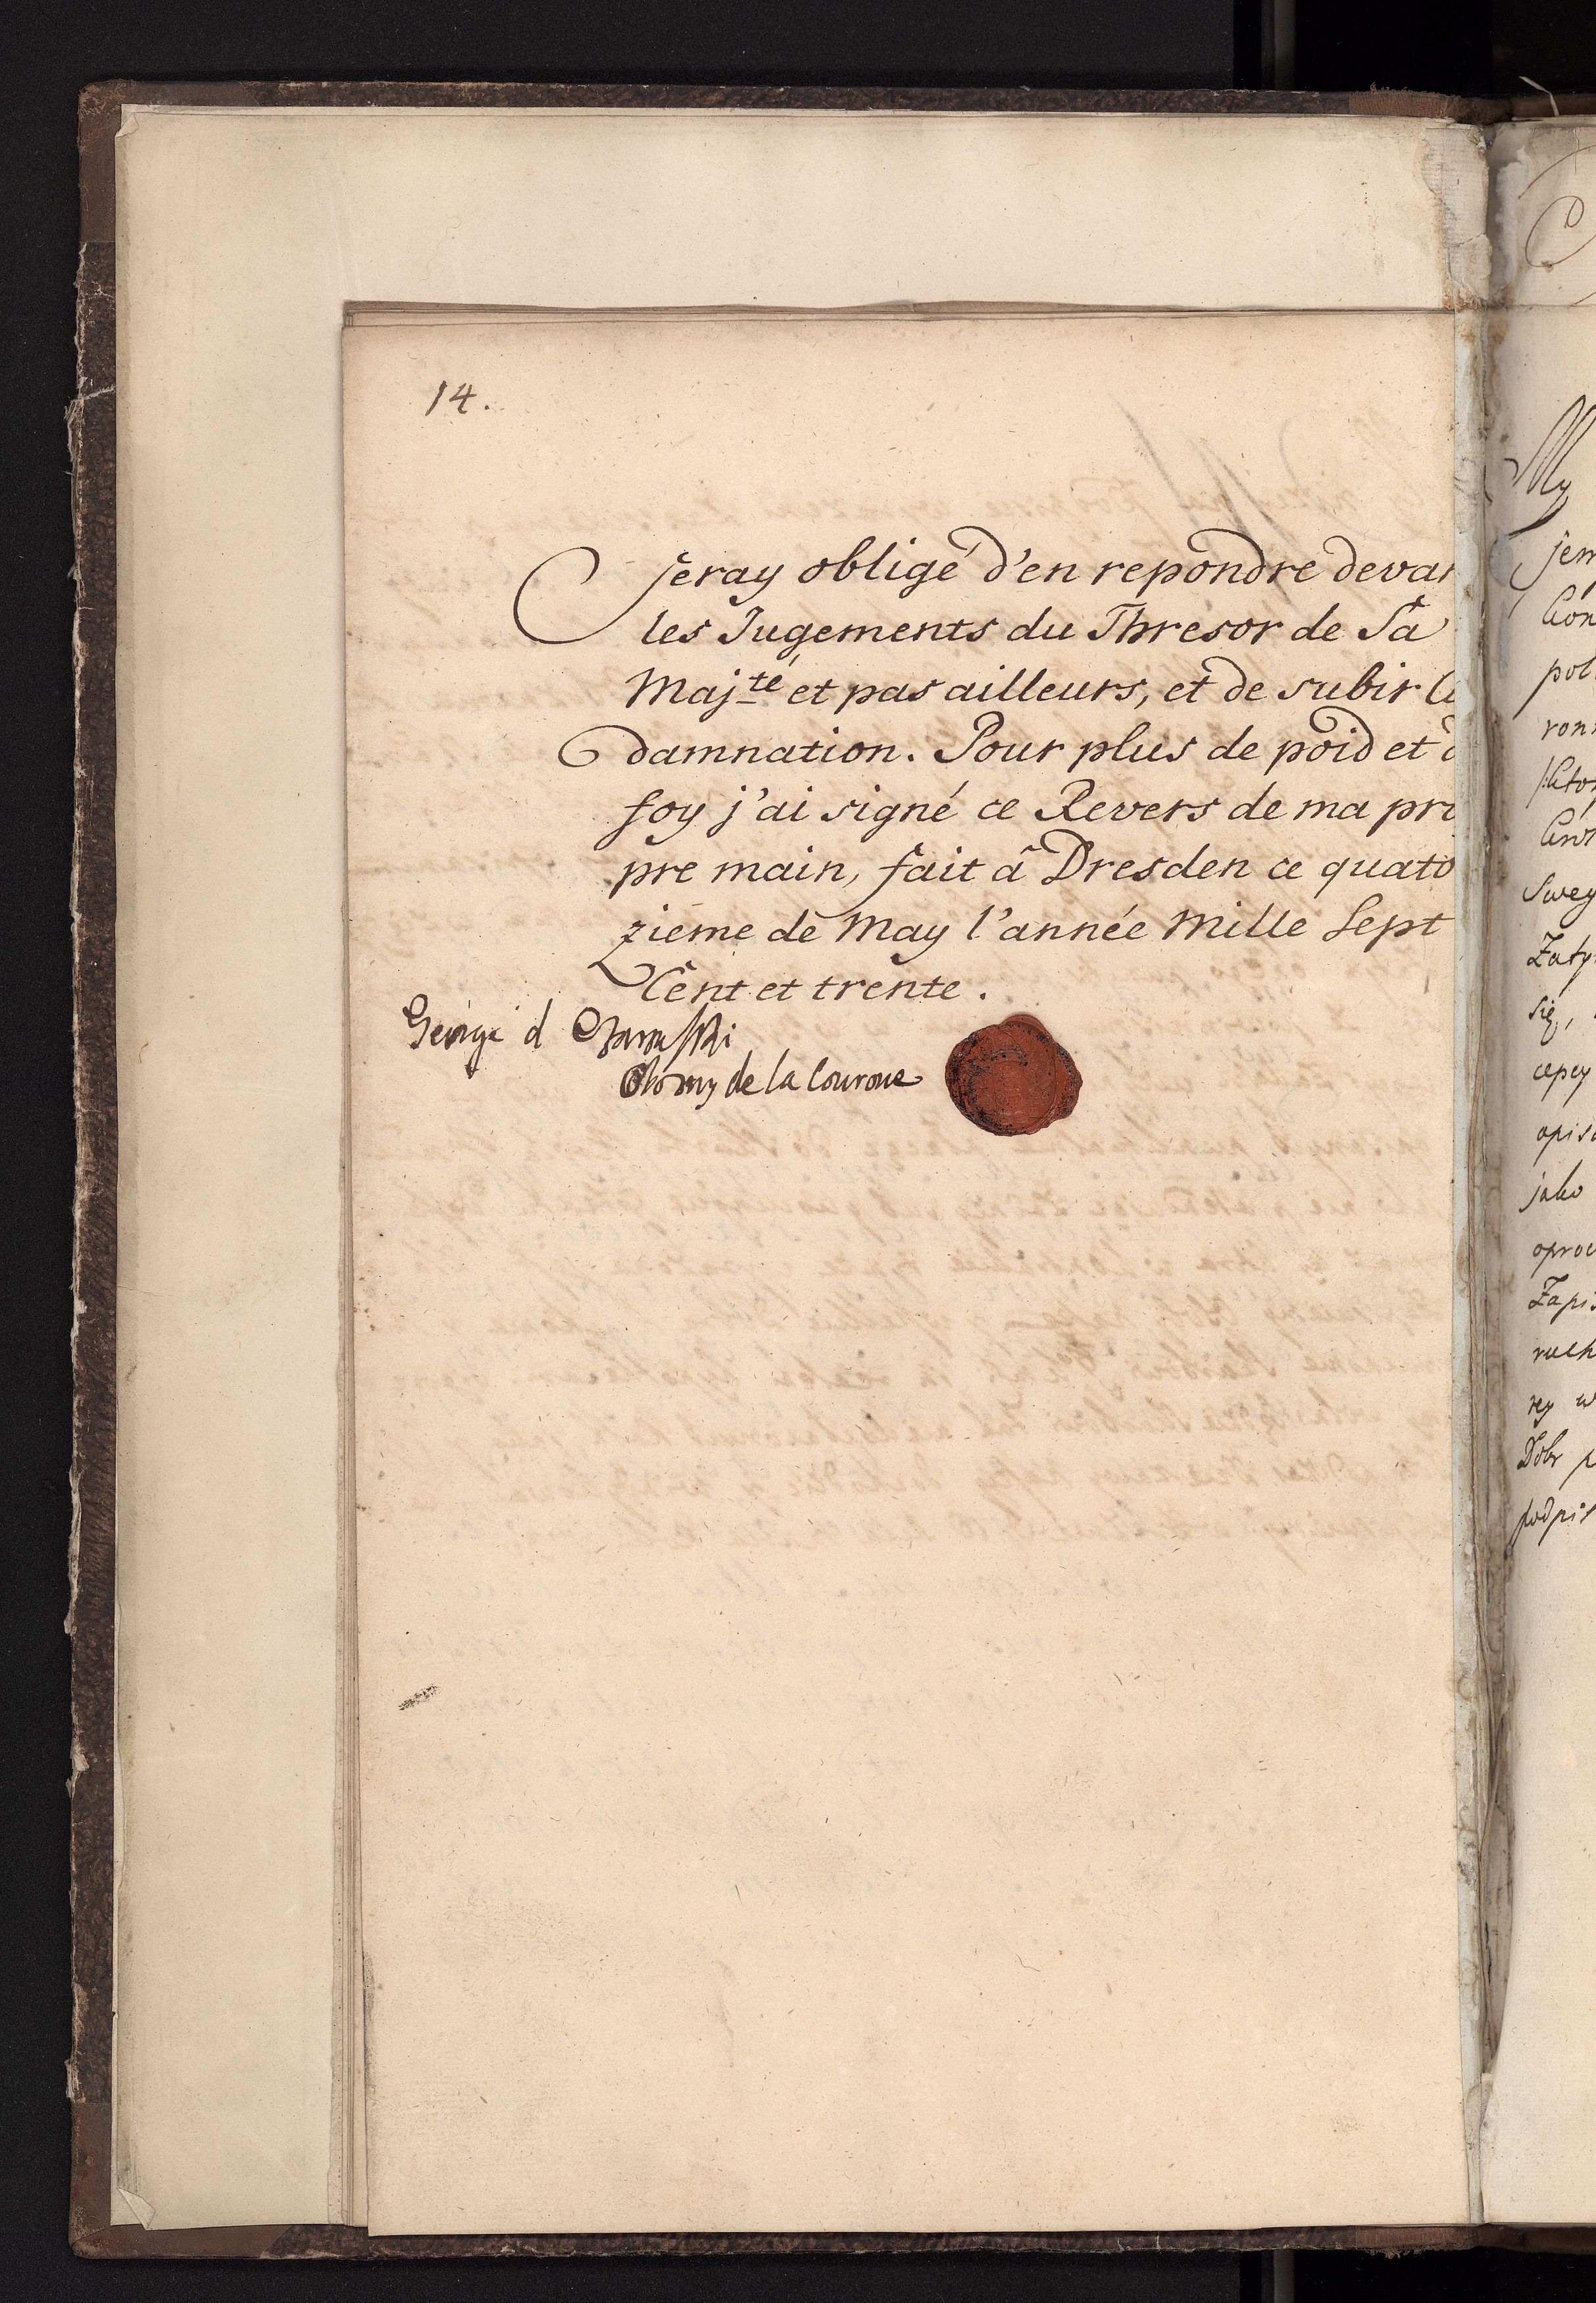 14.
seray obligé d'en repondre devan
les Jugements du Thresor de Sa
Maj:té et pas ailleurs, et de subir
damnation. Pour plus de poid et d
foy j'ai signé ce Revers de ma pro
pre main, fait â Dresden ce quator
zieme de May l'année Mille Sept
Cent et trente.
George d
de la Courone
My
jem
Kon
pol
ronn
swey
Zaty
się,
cepcy
opis
jako
oprou
Zapis
ruch
rey w
Dobr p
podpis